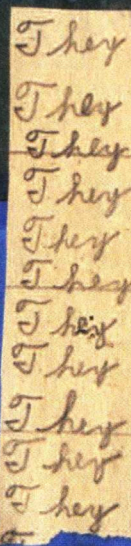 They
They
They
They
They
They
They
They
They
They
They